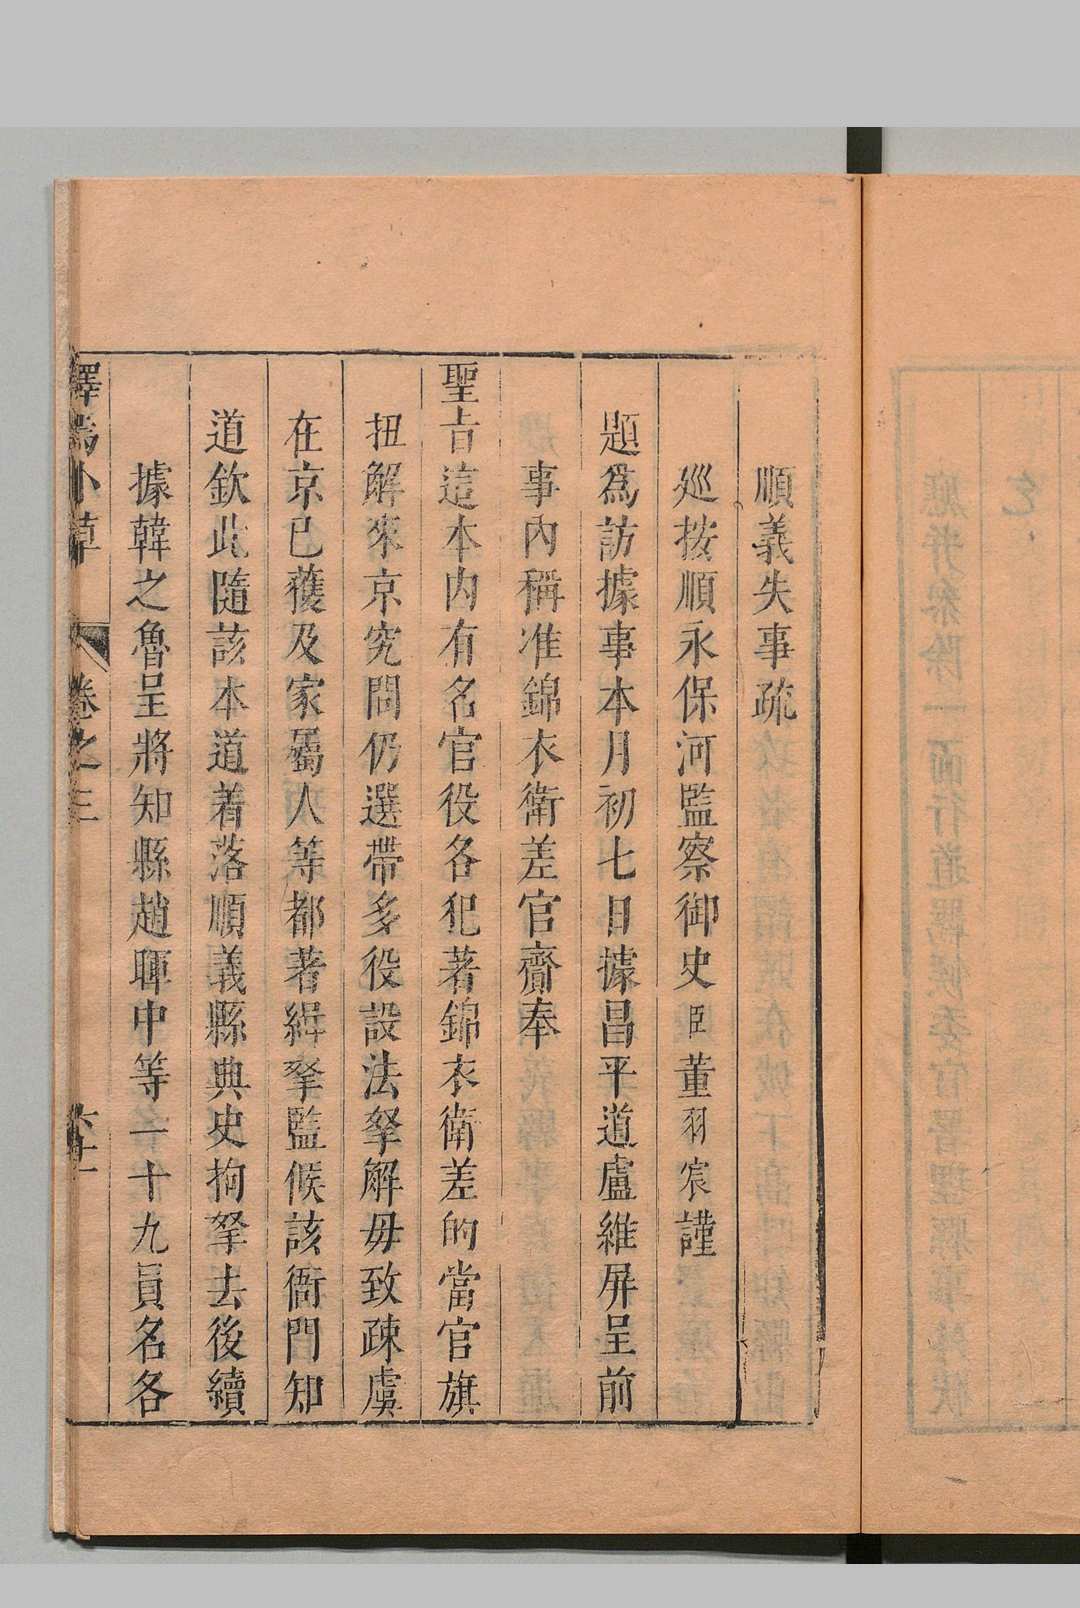 順義失事疏
廵按順永保河監察御史臣董羽宸謹
題爲訪據事本月初七日據昌平道盧維屏呈前
事內稱准錦衣衛差官齎奉
聖旨這本内有名官役各犯著錦衣衛差的當官旗
扭解來京究問仍選帶多役設法拏解毋致疎虞
在京已獲及家屬人等都著緝拏監候該衙門知
道欽此隨該本道着落順義縣典史拘拏去後續
據韓之魯呈將知縣趙暉中等一十九員名各
卷之三